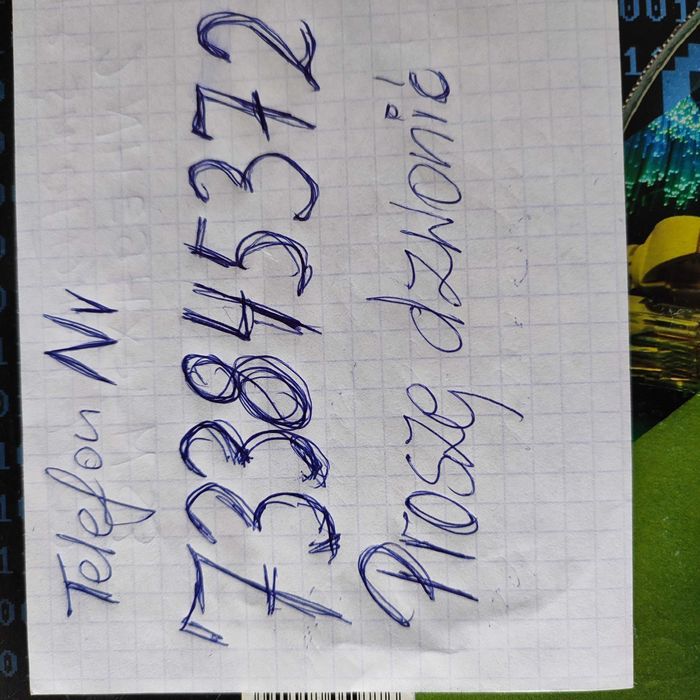 Telefon Nr
733845372
Proszę dzwonić